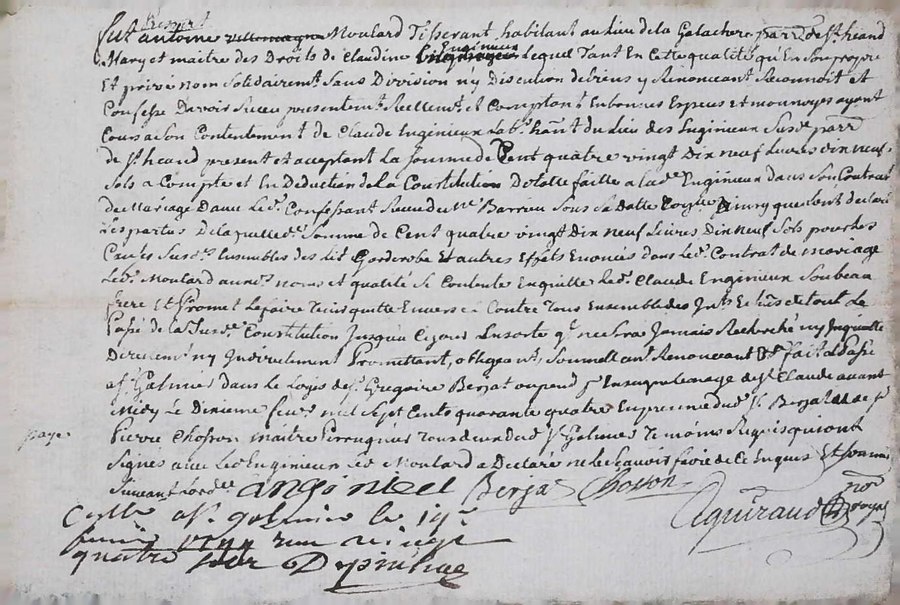 present
fut antoine Moulard Tisserant habitant au lieu de la Galachere parr. de St. heand
Mary et maitre des Droits de Claudine Engineux Lequel Tant En Cette qualité qu'En son propre
Et privé nom solidairemt. Sans Division ny Discution de biens y Renonceant Reconnoit et
Confesse Devoir Receu presentemt. Reellemt. et Comptant Enbonnes Espeses Et monnoyes ayant
Cours a son Contentement de Claude Engineux Lab. hant. du Lieu des Engineux Susd. parr.
de St. heand present et acceptant La somme de Cent quatre vingt Dix neuf Livres dix neuf
Sols a Compte et En Deduction de La Constitution Dotalle faitte a lad. Engineux dans son Contrat
de Mariage Davec Led. Confessant Receu du Me. Barrieu Sous Sa datte
Les parties De laquelle de. Somme de Cent quatre vingt Dix neuf Livres Dix neuf Sols pour les
Causes Susd. Ensembles des lit Garderobe Et autres Effets Enoncés dans Led. Contrat de mariage
Led. Moulard aux. noms et qualité Se Contente Enquitte Led. Claude Engineux Son beau
frere Et Promet Le faire Tenir quitte Envers et Contre Tous Ensemble des Et de tout Le
Passé de la Susd. Constitution Jusqu'a Ce jour Ensorte qe. ne Sera Jamais Recherché ny Inquietté
Directemt. ny Indirectement Promettant, obligeant, Soumettant Renonceant Et fait et Passé
a St. Galmier dans Le Logis de Sr. Gregoire Berjat ou pend pr. Enseigne Lenage de St. Claude avant
Midy Le Dixieme fevr. mil Sept Cents quarante quatre En presence dud. Sr. Berjat et de Sr.
paye
Pierre Chosson maitre Perruquier Tous deux dud. St. Galmier Temoins Requis qui ont
Signés avec Led. Engineux Led. Moulard a Declaré ne le Scavoir faire de Ce Enquis Et Sommé
Suivant l'ord.
anginieet Berjat Chosson
Aguiraud nore. Royal
Crollé a St. galmier le 19e.
fevrier 1744 reçu vingt
quatre sols Depinhac